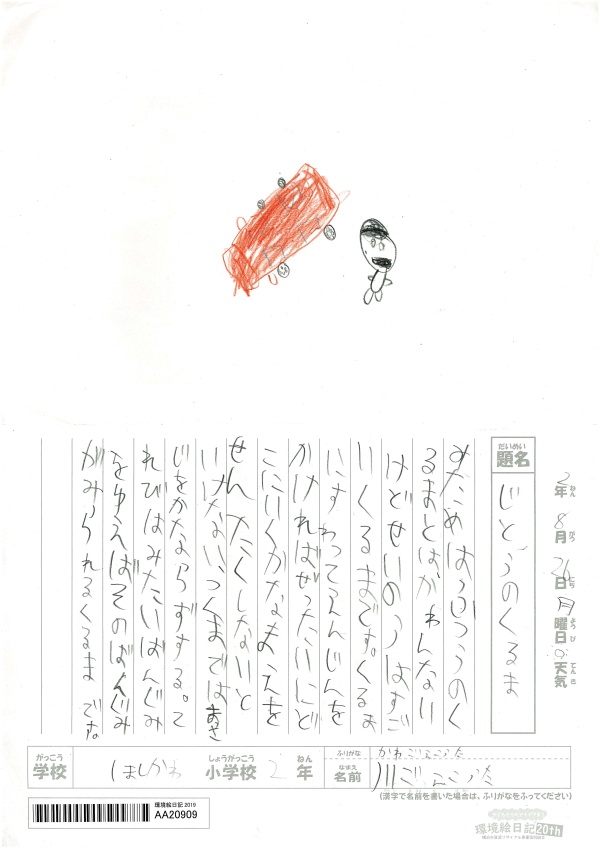 2年 8月 26日 月曜日 天気
ねん がつ にち ようび てんき
だいめい
題名
じどうのくるま
みためはふつうのく
るまとはかわんない
けどせいのうはすご
いくるまです。くるま
にすわってえんじんを
かければぜったいにど
こにいくかなまえを
せんたくしないと
いけない、つくまではあさ
じをかならずする。て
れびはみたいばんぐみ
をゆえばそのばんぐみ
がみられるくるまです。
がっこう
学校
ほしかわ
しょうがっこう
小学校
2
ねん
年
ふりがな
なまえ
名前
(漢字で名前を書いた場合は、ふりがなをふってください)
環境絵日記 2019
AA20909
環境絵日記20th